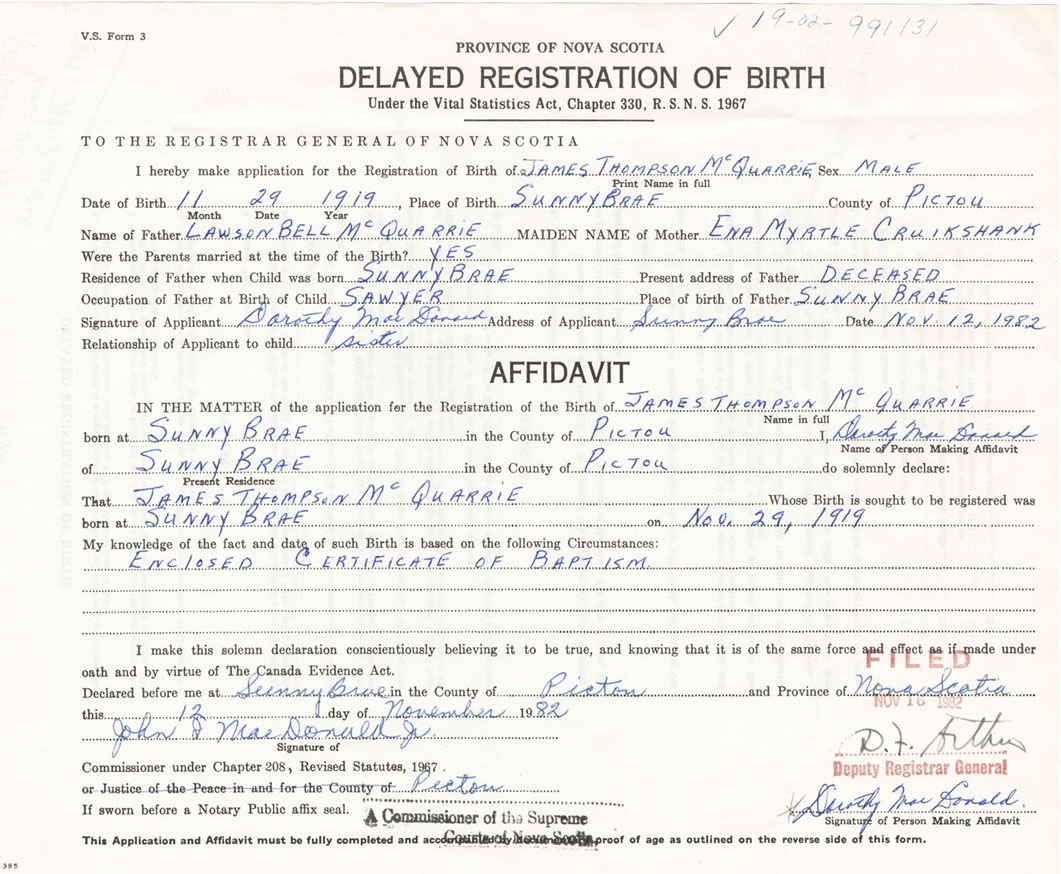 ✓ 19-02-991131
V.S. Form 3
PROVINCE OF NOVA SCOTIA
DELAYED REGISTRATION OF BIRTH
Under the Vital Statistics Act, Chapter 330, R.S.N.S. 1967
TO THE REGISTRAR GENERAL OF NOVA SCOTIA
I hereby make application for the Registration of Birth of JAMES THOMPSON McQUARRIE Sex MALE
Print Name in full
Date of Birth 11 29 1919, Place of Birth SUNNYBRAE County of PICTOU
Month Date Year
Name of Father LAWSON BELL McQUARRIE MAIDEN NAME of Mother ENA MYRTLE CRUIKSHANK
Were the Parents married at the time of the Birth? YES
Residence of Father when Child was born SUNNYBRAE Present address of Father DECEASED
Occupation of Father at Birth of Child SAWYER Place of birth of Father SUNNY BRAE
Signature of Applicant Dorothy MacDonald Address of Applicant Sunny Brae Date Nov 12, 1982
Relationship of Applicant to child sister
AFFIDAVIT
IN THE MATTER of the application for the Registration of the Birth of JAMES THOMPSON Mc QUARRIE
Name in full
born at SUNNY BRAE in the County of PICTOU I, Dorothy MacDonald
Name of Person Making Affidavit
of SUNNY BRAE in the County of PICTOU do solemnly declare:
Present Residence
That JAMES THOMPSON Mc QUARRIE Whose Birth is sought to be registered was
born at SUNNY BRAE on Nov. 29, 1919
My knowledge of the fact and date of such Birth is based on the following Circumstances:
ENCLOSED CERTIFICATE OF BAPTISM.
I make this solemn declaration conscientiously believing it to be true, and knowing that it is of the same force and effect as if made under
FILED
oath and by virtue of The Canada Evidence Act.
Declared before me at Sunny Brae in the County of Pictou and Province of Nova Scotia
NOV 16 1982
this 12 day of November 1982
John D MacDonald Jr.
Signature of
D.F. Arthur
Deputy Registrar General
Commissioner under Chapter 208, Revised Statutes, 1967
or Justice of the Peace in and for the County of Pictou
Dorothy MacDonald.
If sworn before a Notary Public affix seal.
A Commissioner of the Supreme
Signature of Person Making Affidavit
Courts of Nova Scotia
This Application and Affidavit must be fully completed and accompanied by documentary proof of age as outlined on the reverse side of this form.
385